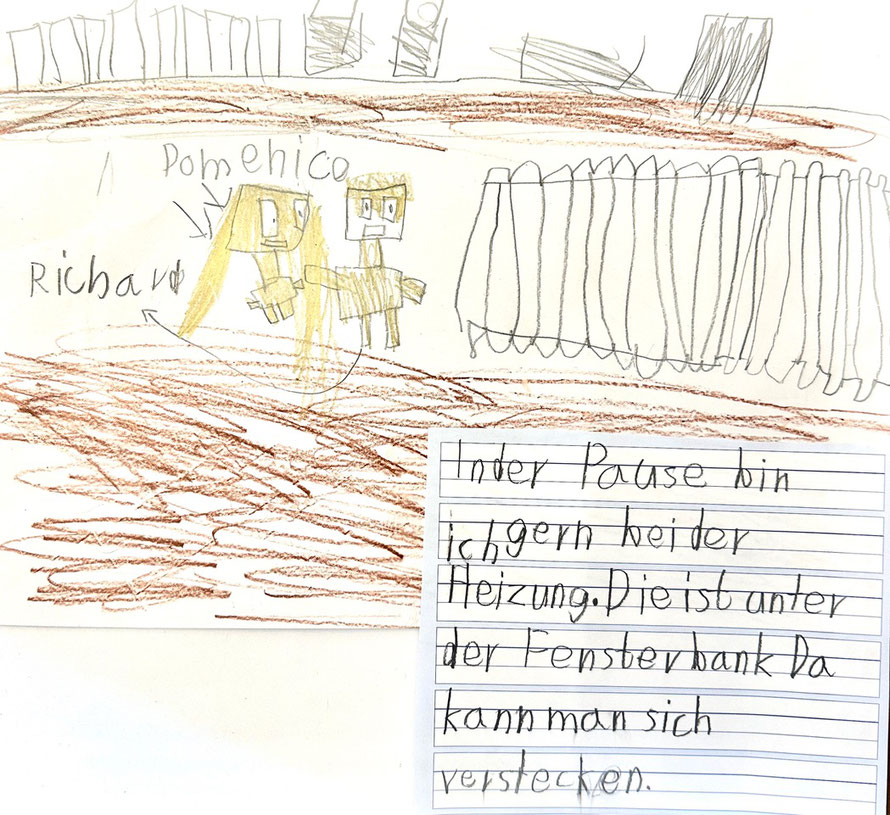 Domenico
Richard
In der Pause bin
ich gern bei der
Heizung. Die ist unter
der Fensterbank Da
kann man sich
verstecken.